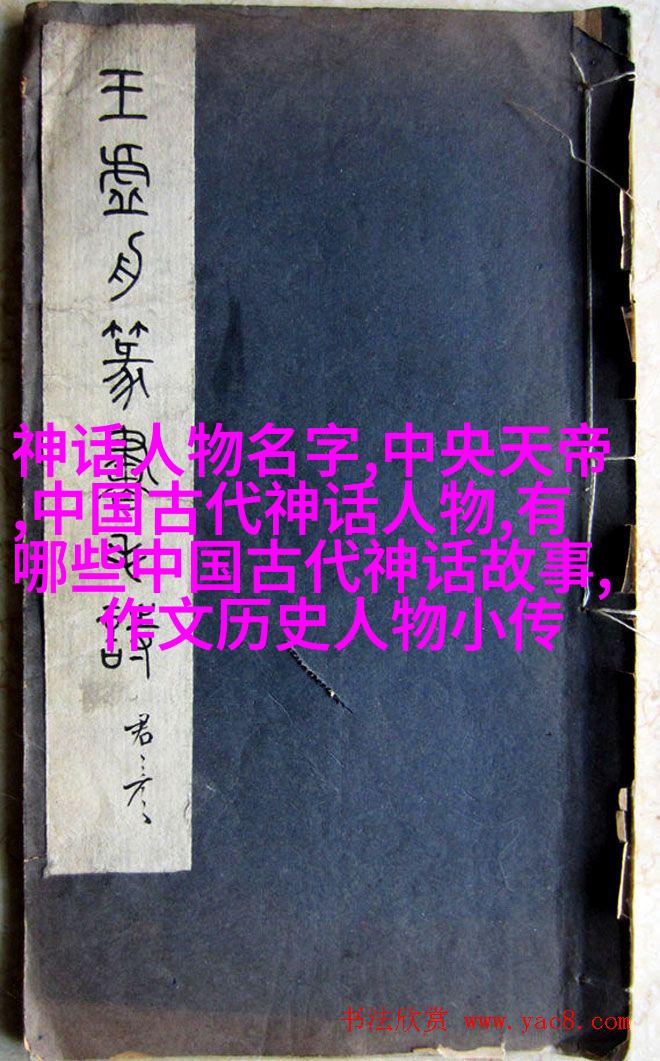 王虛舟篆書
神话人物名字,中央天帝
,中国古代神话人物,有
哪些中国古代神话故事,
作文历史人物小传
书法欣赏 www.yac8.com